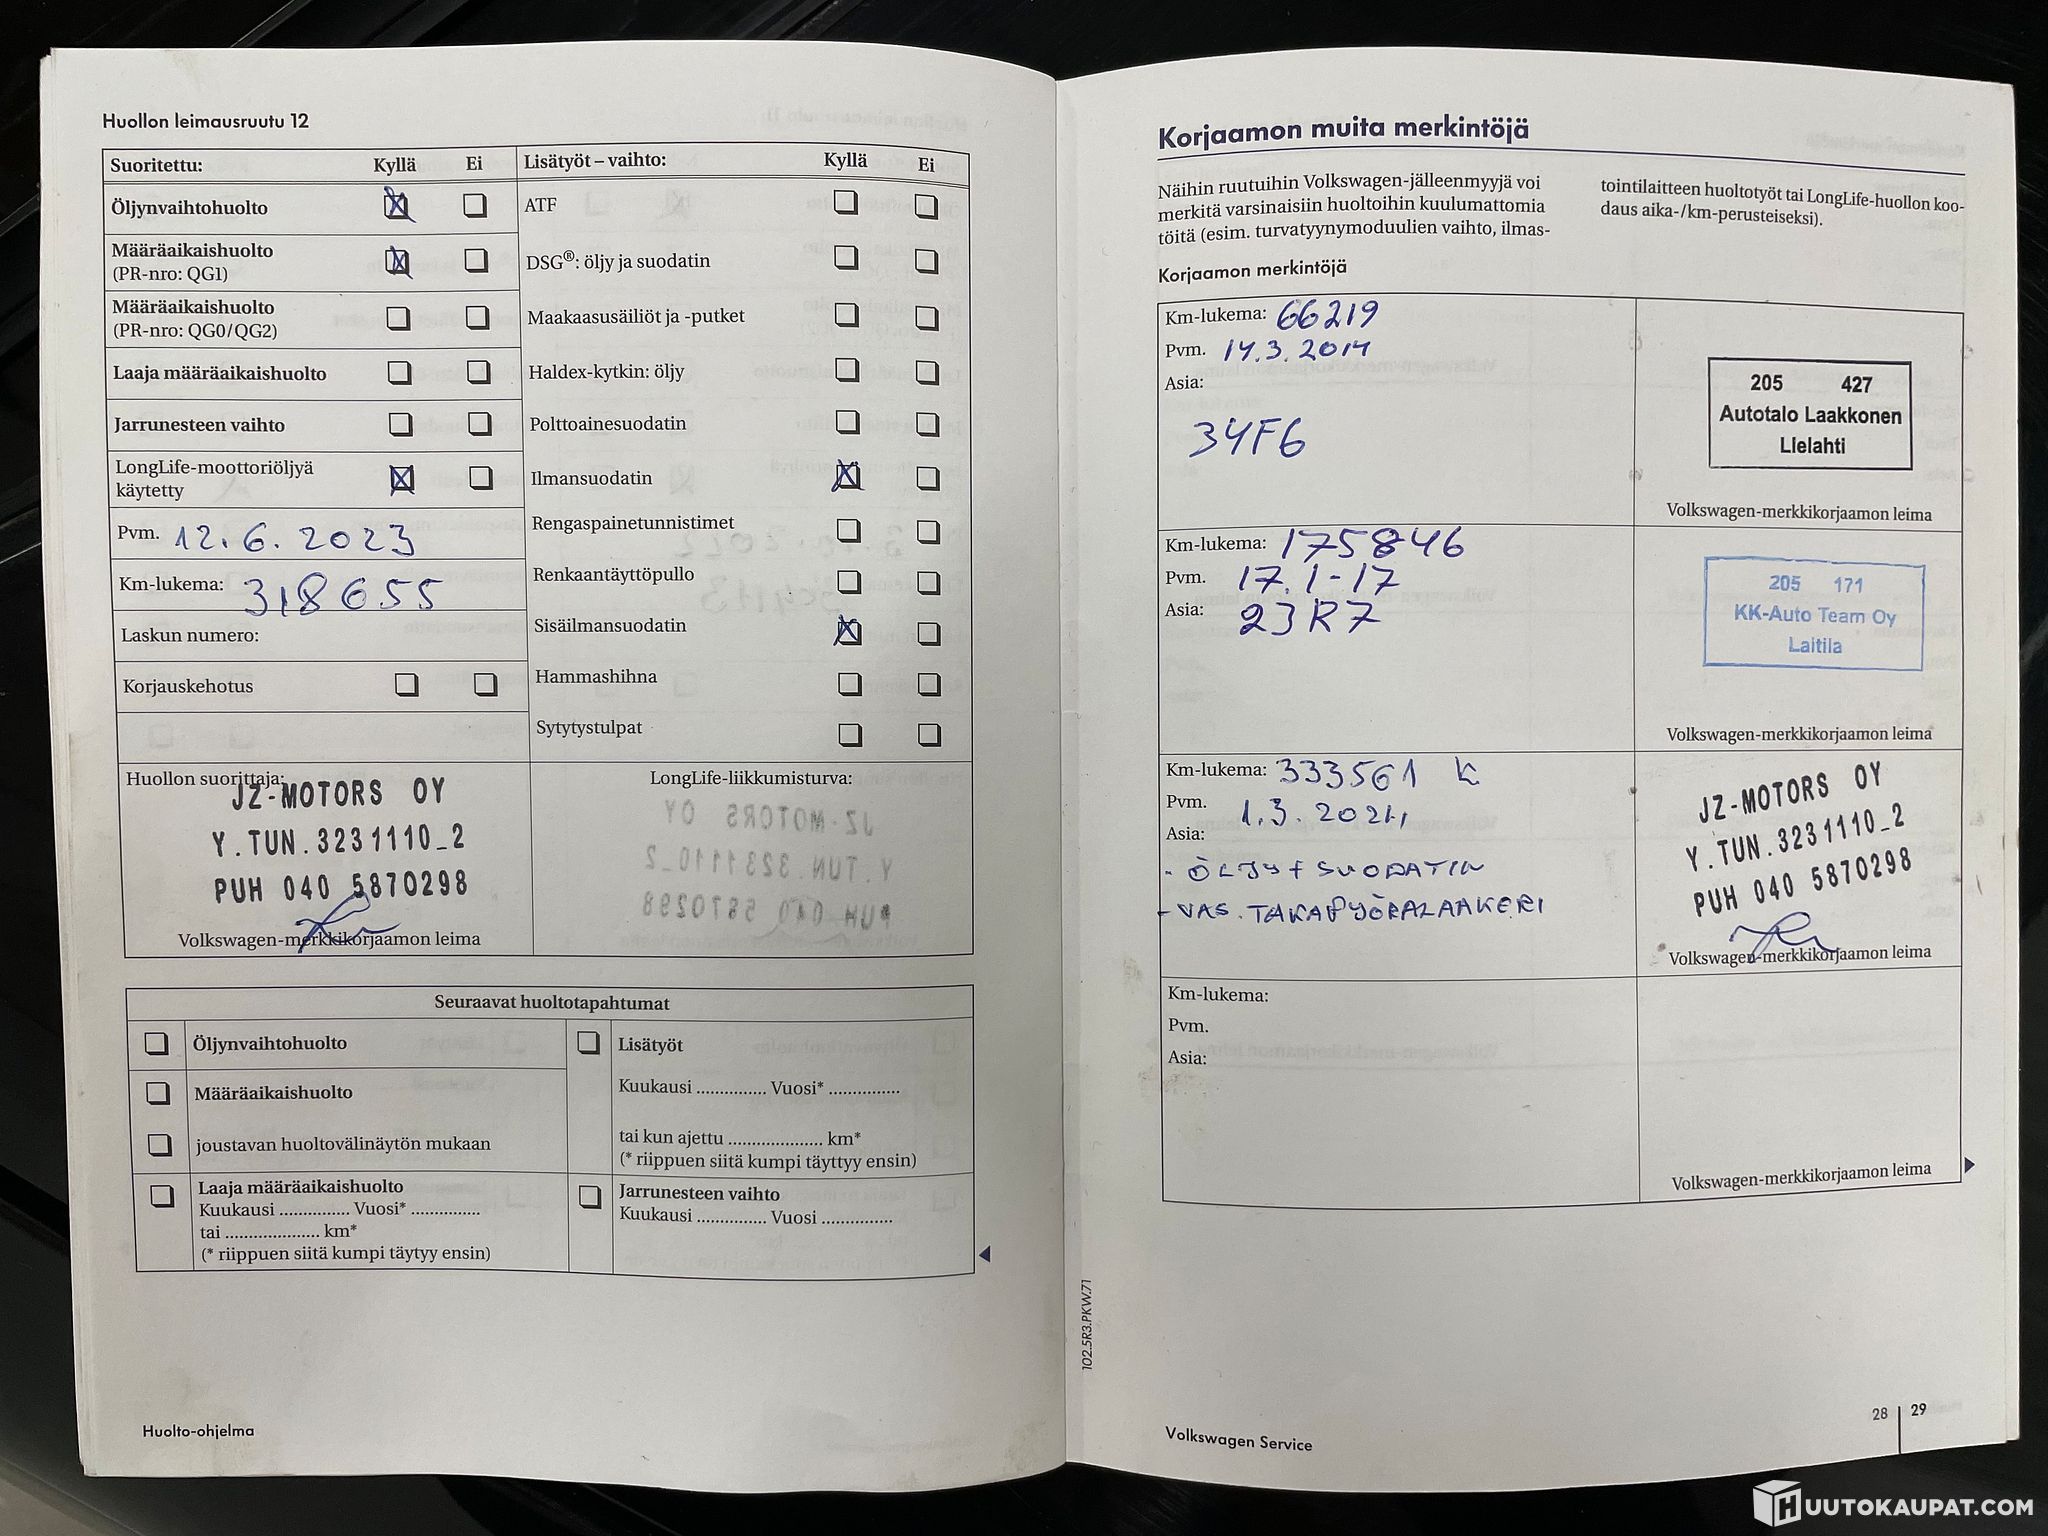 Huollon leimausruutu 12
Suoritettu: Kyllä Ei
Öljynvaihtohuolto
Määräaikaishuolto
(PR-nro: QG1)
Määräaikaishuolto
(PR-nro: QG0/QG2)
Laaja määräaikaishuolto
Jarrunesteen vaihto
LongLife-moottoriöljyä
käytetty
Pvm. 12.6.2023
Km-lukema: 318655
Laskun numero:
Korjauskehotus
Lisätyöt – vaihto: Kyllä Ei
ATF
DSG®: öljy ja suodatin
Maakaasusäiliöt ja -putket
Haldex-kytkin: öljy
Polttoainesuodatin
Ilmansuodatin
Rengaspainetunnistimet
Renkaantäyttöpullo
Sisäilmansuodatin
Hammashihna
Sytytystulpat
Huollon suorittaja:
JZ-MOTORS OY
Y.TUN.3231110_2
PUH 040 5870298
Volkswagen-merkkikorjaamon leima
LongLife-liikkumisturva:
Seuraavat huoltotapahtumat
Öljynvaihtohuolto
Määräaikaishuolto
joustavan huoltovälinäytön mukaan
Laaja määräaikaishuolto
Kuukausi ............... Vuosi* ...............
tai .................... km*
(* riippuen siitä kumpi täytyy ensin)
Lisätyöt
Kuukausi ............... Vuosi* ...............
tai kun ajettu .................... km*
(* riippuen siitä kumpi täyttyy ensin)
Jarrunesteen vaihto
Kuukausi ............... Vuosi ...............
Huolto-ohjelma
102.5R3.PKW.71
Korjaamon muita merkintöjä
Näihin ruutuihin Volkswagen-jälleenmyyjä voi
merkitä varsinaisiin huoltoihin kuulumattomia
töitä (esim. turvatyynymoduulien vaihto, ilmas-
tointilaitteen huoltotyöt tai LongLife-huollon koo-
daus aika-/km-perusteiseksi).
Korjaamon merkintöjä
Km-lukema: 66219
Pvm. 14.3.2014
Asia:
34F6
205 427
Autotalo Laakkonen
Llelahti
Volkswagen-merkkikorjaamon leima
Km-lukema: 175846
Pvm. 17.1-17
Asia: 23R7
205 171
KK-Auto Team Oy
Laitila
Volkswagen-merkkikorjaamon leima
Km-lukema: 333561 K
Pvm. 1.3.2024,
Asia:
- ÖLJY + SUODATIN
- VAS. TAKAPYÖRÄLAAKERI
JZ-MOTORS OY
Y.TUN.3231110_2
PUH 040 5870298
Volkswagen-merkkikorjaamon leima
Km-lukema:
Pvm.
Asia:
Volkswagen-merkkikorjaamon leima
Volkswagen Service
28 29
HUUTOKAUPAT.COM